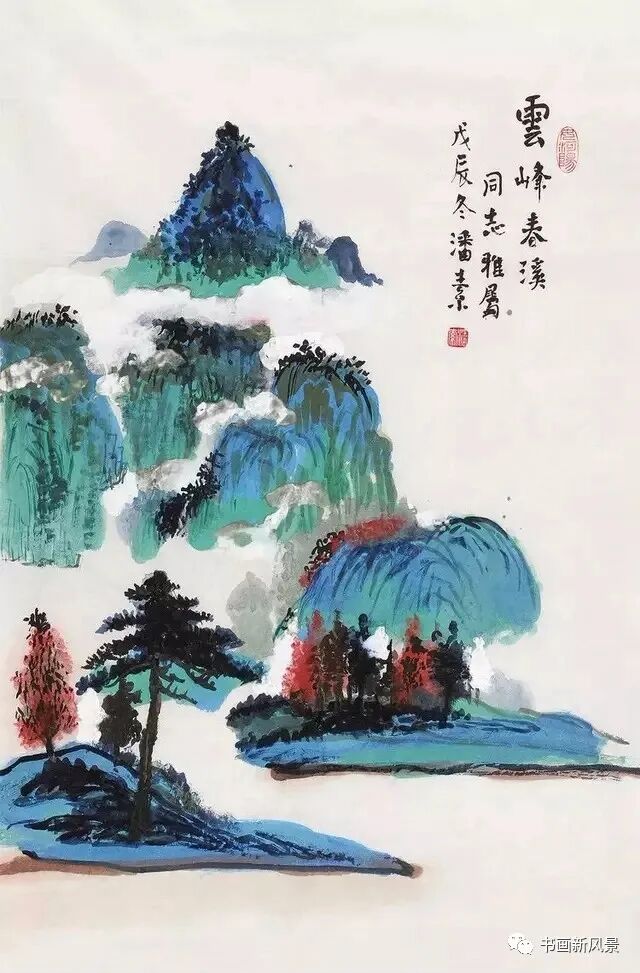 雲峰春溪
同志雅屬
戊辰冬潘素
书画新风景